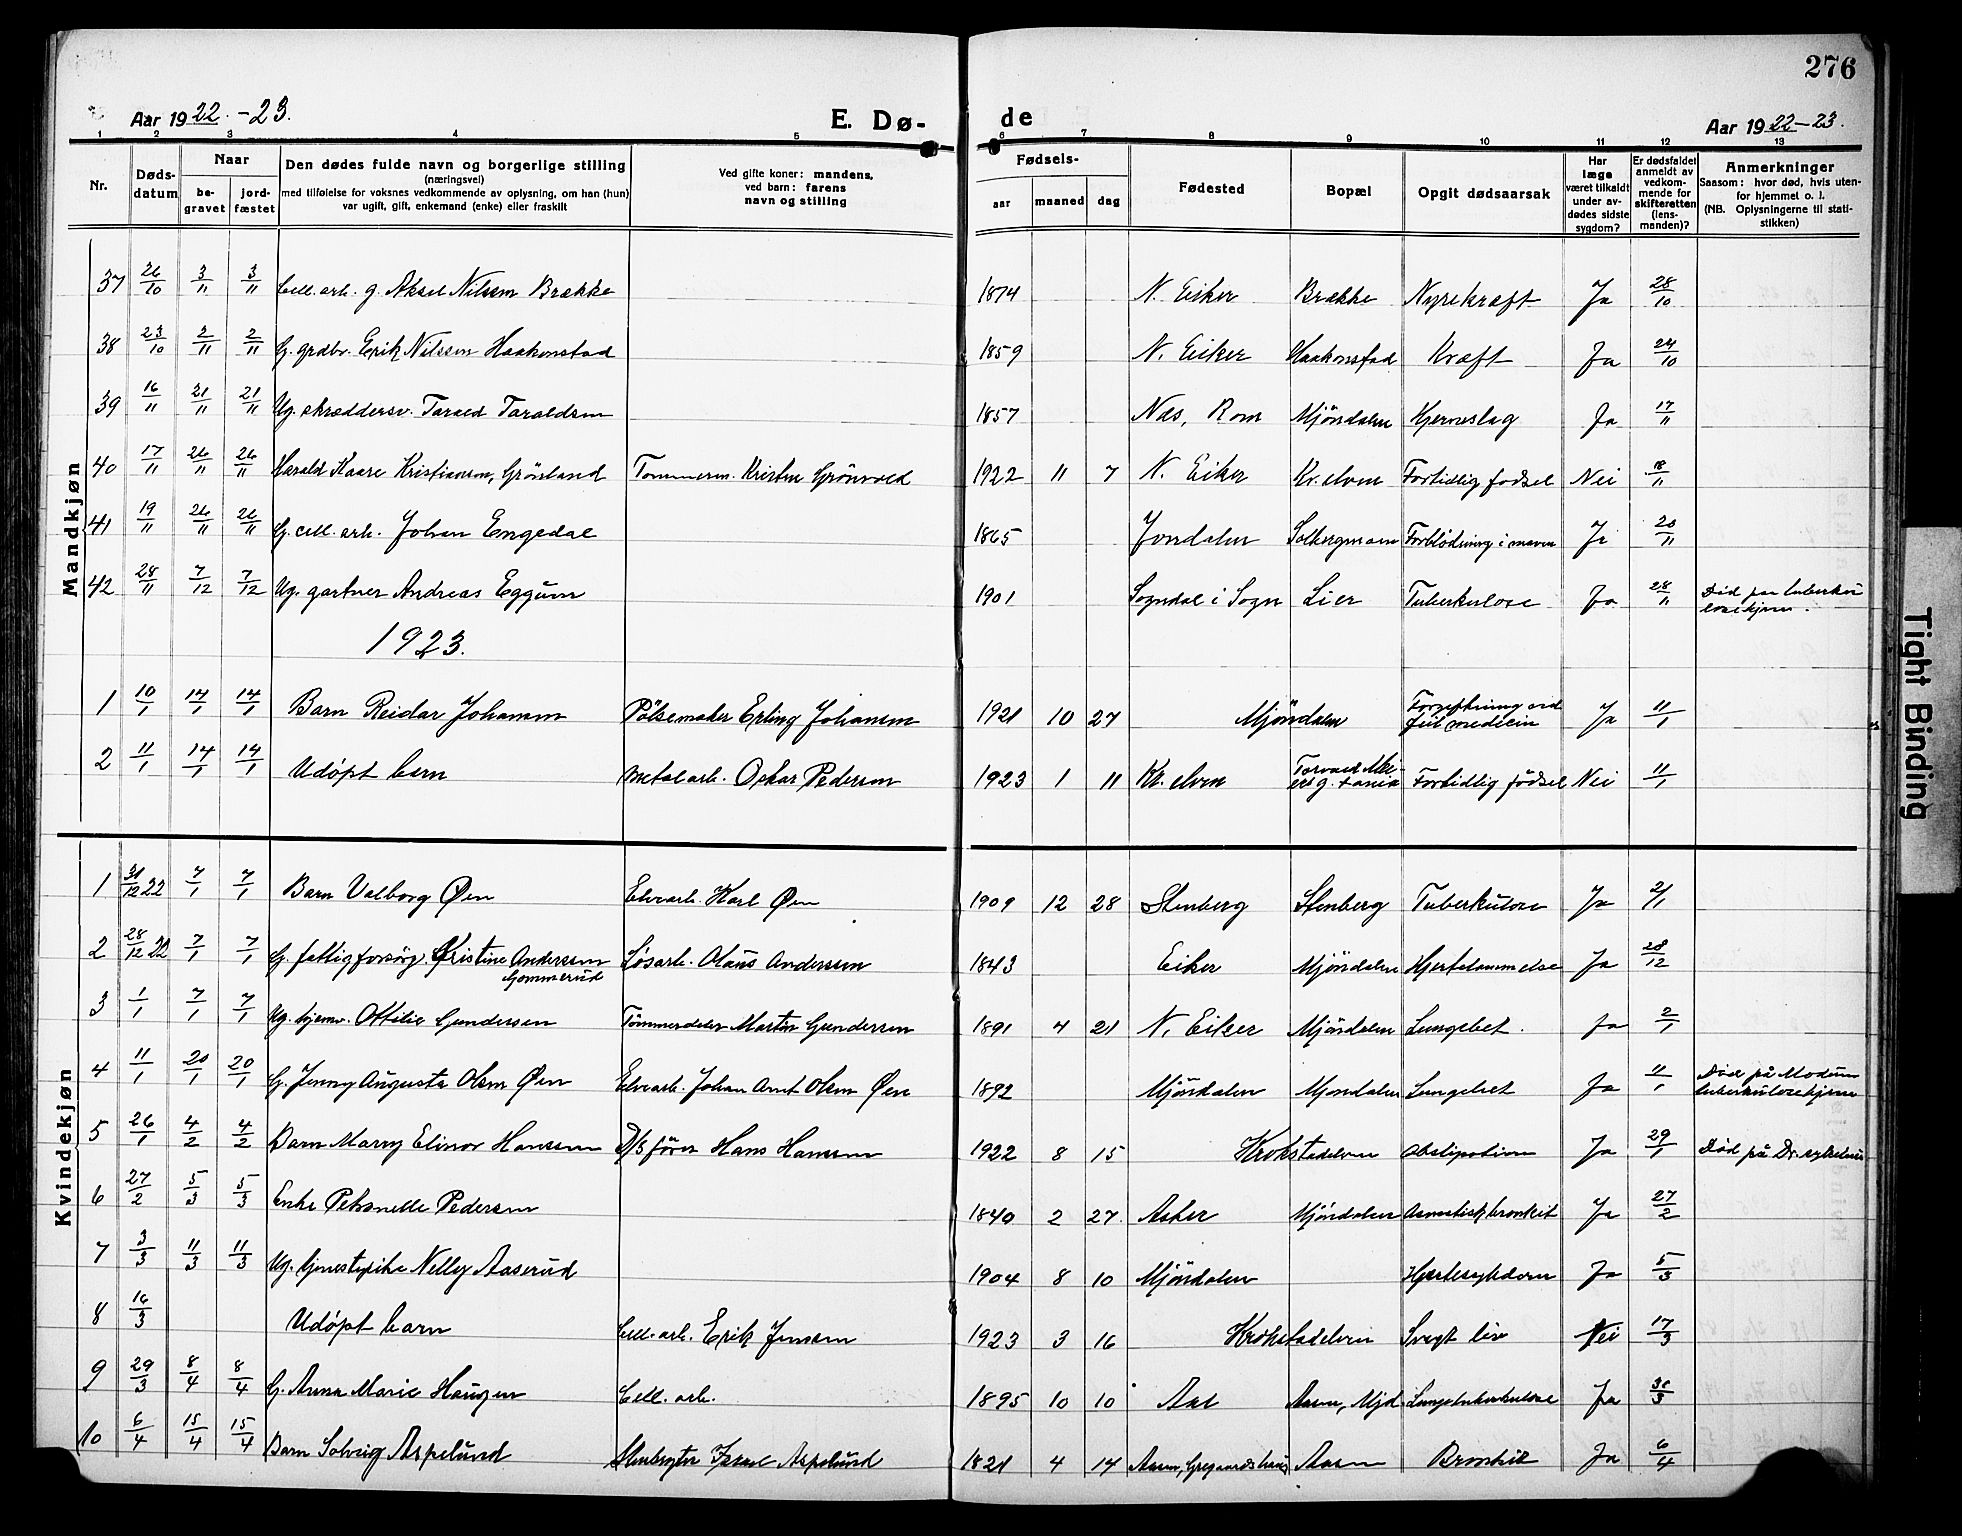 276
Aar 1922-23.
E. Dø-
de
Aar 1922-23.
1 2 3 4 5 6 7 8 9 10 11 12 13
Nr.
Døds-
datum
Naar
be-
gravet
jord-
fæstet
Den dødes fulde navn og borgerlige stilling
(næringsvei)
med tilføielse for voksnes vedkommende av oplysning, om han (hun)
var ugift, gift, enkemand (enke) eller fraskilt
Ved gifte koner: mandens,
ved barn: farens
navn og stilling
Fødsels-
aar
maaned
dag
Fødested
Bopæl
Opgit dødsaarsak
Har
læge
været tilkaldt
under av-
dødes sidste
sygdom?
Er dødsfaldet
anmeldt av
vedkom-
mende for
skifteretten
(lens-
manden)?
Anmerkninger
Saasom: hvor død, hvis uten-
for hjemmet o. l.
(NB. Oplysningerne til stati-
stikken)
Mandkjøn
37 26/10 3/11 3/11 Cell. arb. g. Aksel Nilssen Brække 1874 N. Eiker Brække Nyrekræft Ja 28/10
38 23/10 2/11 2/11 G. grdbr. Erik Nilssen Haakonstad 1859 N. Eiker Haakonstad Kræft Ja 24/10
39 16/11 21/11 21/11 Ug. skræddersv. Tarald Taraldsen 1857 Næs, Rom Mjöndalen Hjerneslag Ja 17/11
40 17/11 26/11 26/11 Harald Kaare Kristiansen, Grönland Tömmerm. Kristen Grönvold 1922 11 7 N. Eiker Kr. elven Fortidlig fødsel Nei 18/11
41 19/11 26/11 26/11 G. cell. arb. Johan Engedal 1865 Jondalen Solbergmoen Forblödning i maven Ja 20/11
42 28/11 7/12 7/12 Ug. gartner Andreas Eggum 1901 Sogndal i Sogn Lier Tuberkulose Ja 28/11 Død paa tuberku-
losehjem.
1923.
1 10/1 14/1 14/1 Barn Reidar Johansen Pölsemaker Erling Johansen 1921 10 27 Mjöndalen Forgiftning ved
feil medicin Ja 11/1
2 11/1 14/1 14/1 Udøpt barn Metalarb. Oskar Pedersen 1923 1 11 Kr. elven Fortidlig fødsel Nei 11/1
Kvindekjøn
1 31/12 22 7/1 7/1 Barn Valborg Øen Elvearb. Karl Øen 1909 12 28 Stenberg Stenberg Tuberkulose Ja 2/1
2 28/12 22 7/1 7/1 G. fattigforsörg. Kristine Anderssen
Gommerud Løsarb. Olaus Anderssen 1843 Eiker Mjöndalen Hjertelammelse Ja 28/12
3 1/1 7/1 7/1 Ug. hjemv. Ottilie Gundersen Tömmerdeler Martin Gundersen 1891 4 21 N. Eiker Mjöndalen Lungebet. Ja 2/1
4 11/1 20/1 20/1 G. Jenny Augusta Olsen Øen Elvearb. Johan Arnt Olsen Øen 1892 Mjöndalen Mjondalen Lungebet Ja 11/1 Död på Modum
tuberkulosehjem
5 26/1 4/2 4/2 Barn Marry Elinor Hanssen D/S förer Hans Hanssen 1922 8 15 Krokstadelven Obstipation Ja 29/1 Död på Dr. sykehus
6 27/2 5/3 5/3 Enke Petronelle Pedersen 1840 2 27. Asker Mjöndalen Asmatisk bronkit Ja 27/2
7 3/3 11/3 11/3 Ug. tjenestepike Nelly Aaserud 1904 8 10 Mjöndalen Hjertesykdom Ja 5/3
8 16/3 Udöpt barn Cell. arb. Erik Jensen 1923 3 16 Krokstadelven Svagt liv Nei 17/3
9 29/3 8/4 8/4 G. Anna Marie Haugen Cell. arb. 1895 10 10 Aal Aasen, Mjd. Lungetuberkulose Ja 31/3
10 6/4 15/4 15/4 Barn Solveig Aspelund Stenbryter Aspelund 1821 4 14 Aasen, Aasen Bronkit Ja 6/4
Tight Binding